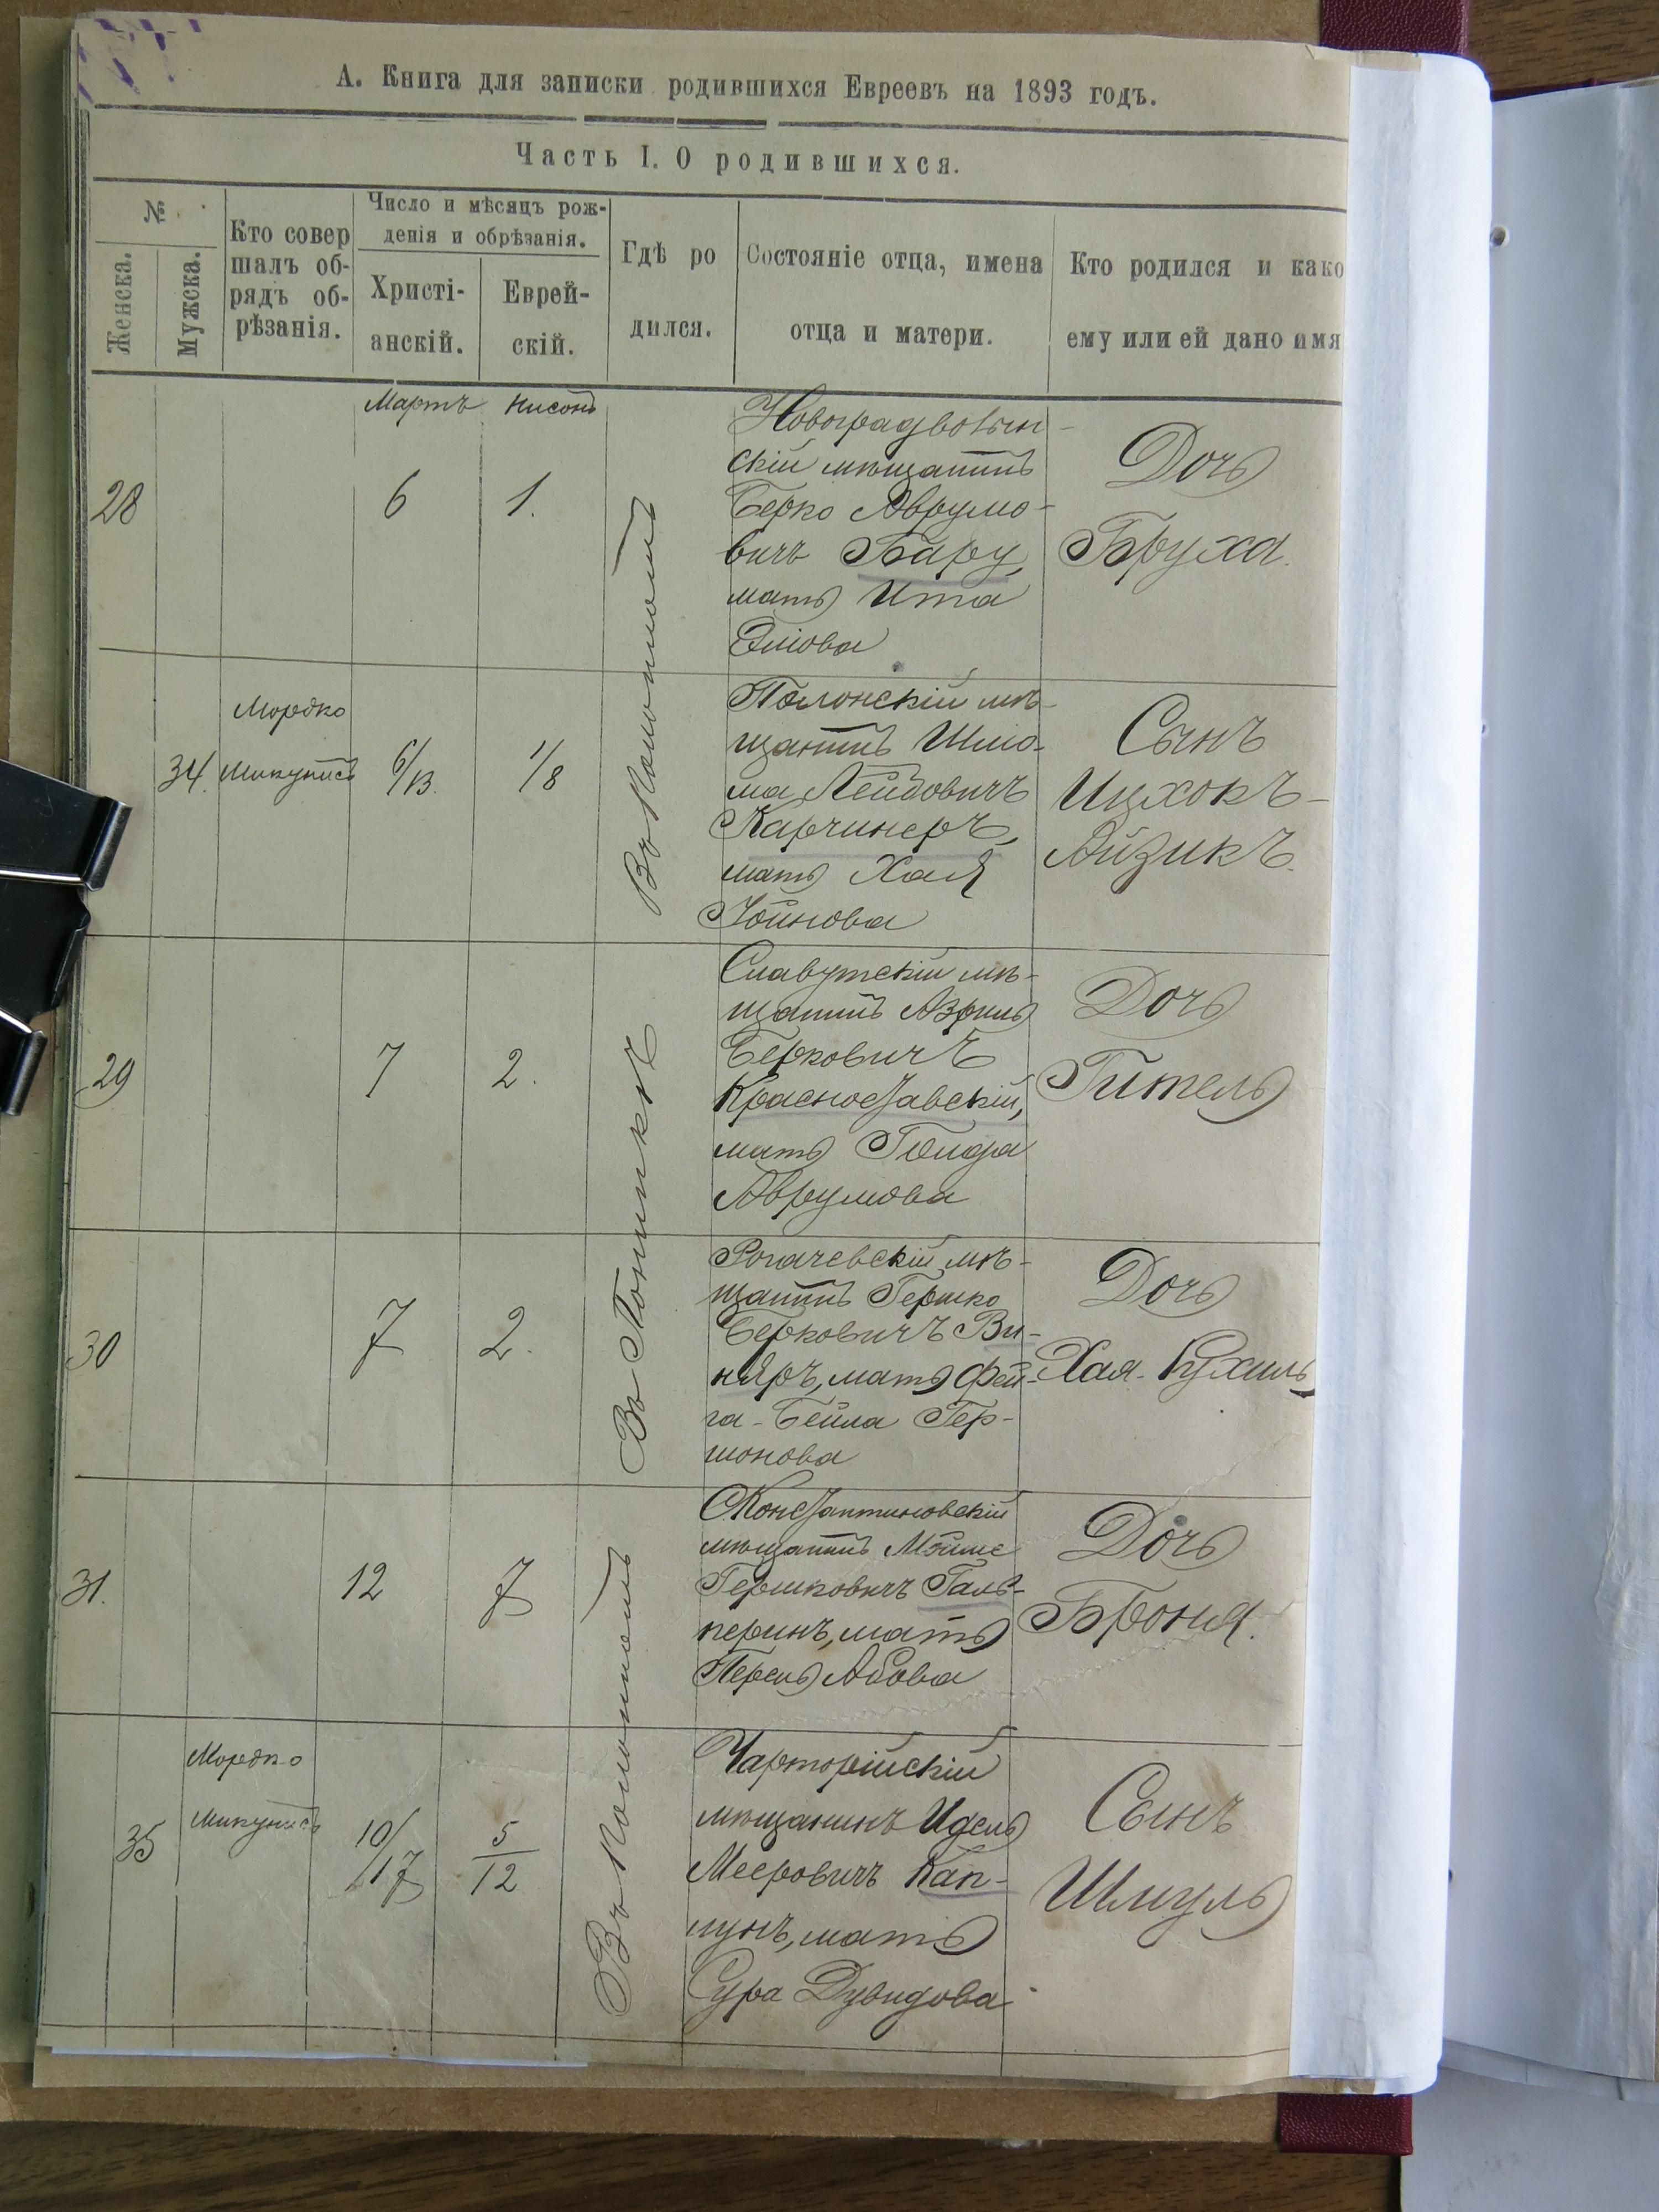 А. Книга для записки родившихся Евреевъ на 1893 годъ.
Часть I. О родившихся.
№
Женска.
Мужска.
Кто совер
шалъ об-
рядъ об-
рѣзанія.
Число и мѣсяцъ рож-
денія и обрѣзанія.
Христі-
анскій.
Еврей-
скій.
Гдѣ ро
дился.
Состояніе отца, имена
отца и матери.
Кто родился и како
ему или ей дано имя
Мартъ
Нисонъ
28
6
1.
Новоградволын-
скій мѣщанинъ
Берко Аврумо-
вичъ Бару,
мать Ита
Эліова
Дочь
Бруха.
34.
Мордко
Микунисъ
6/13.
1/8
Въ Полонномъ
Полонскій мѣ-
щанинъ Шлио-
ма Лейбовичъ
Карчинеръ,
мать Хая
Іойнова
Сынъ
Ицхокъ-
Айзикъ.
29
7
2.
Славутскій мѣ-
щанинъ Азриль
Берковичъ
Красноставскій,
мать Голда
Аврумова
Дочь
Гитель
30
7
2.
Въ Понинкѣ
Рогачевскій мѣ-
щанинъ Гершко
Берковичъ Ви-
няръ, мать Фей-
га-Бейла Гер-
шонова
Дочь
Хая-Рухиль
31.
12
7
Староконстантиновскій
мѣщанинъ Мойше
Гершковичъ Галь-
перинъ, мать
Перель Абова
Дочь
Броня.
35
Мордко
Микунисъ
10/17
5/12
Въ Полонномъ
Чарторійскій
мѣщанинъ Идель
Мееровичъ Кап-
лунъ, мать
Сура Дувидова
Сынъ
Шмуль